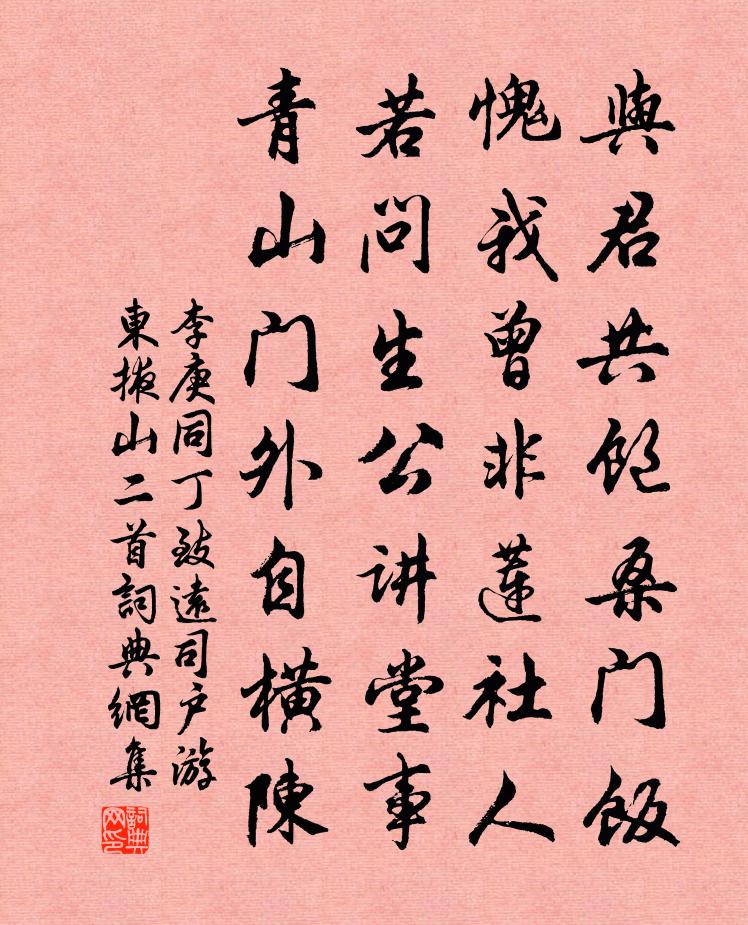 與君共飽桑门飯
愧我曾非蓮社人
若问生公讲堂事
青山门外自橫陳
李庚同丁致遠司户游
東掖山二首詞典網集
詞典网印